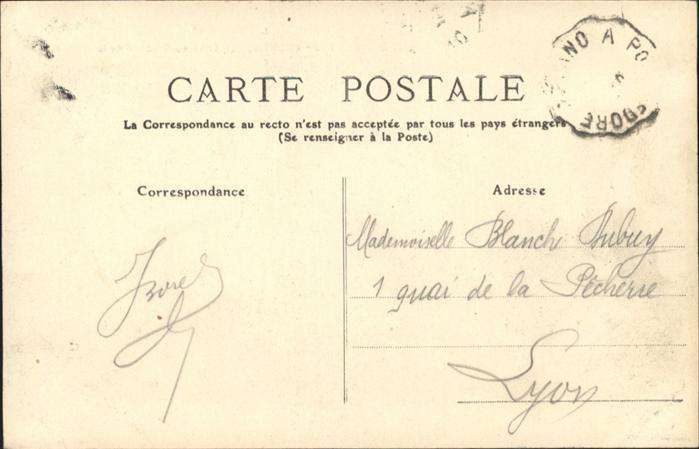 CARTE POSTALE
La Correspondance au recto n'est pas acceptée par tous les pays étrangers
(Se renseigner à la Poste)
Correspondance
Adresse
Mademoiselle Blanch Dubuy
1 quai de la Pêcherie
Lyon
A PO